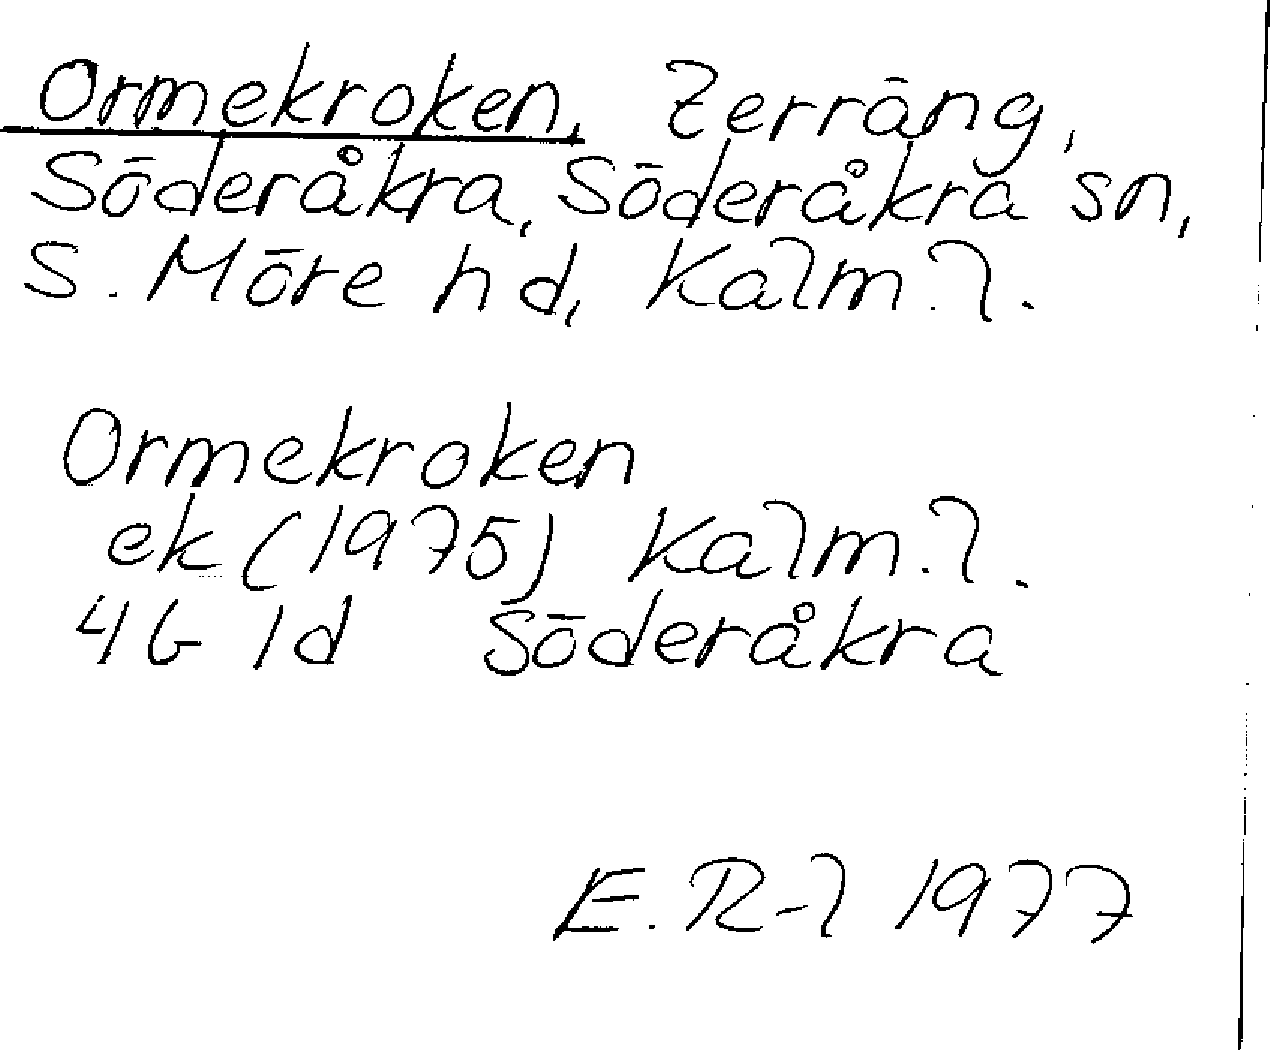 Ormekroken, Terräng,
Söderåkra, Söderåkra sn,
S. Möre hd, Kalm. l.
Ormekroken
ek (1975) Kalm. l.
4G 1d Söderåkra
E. R-l 1977